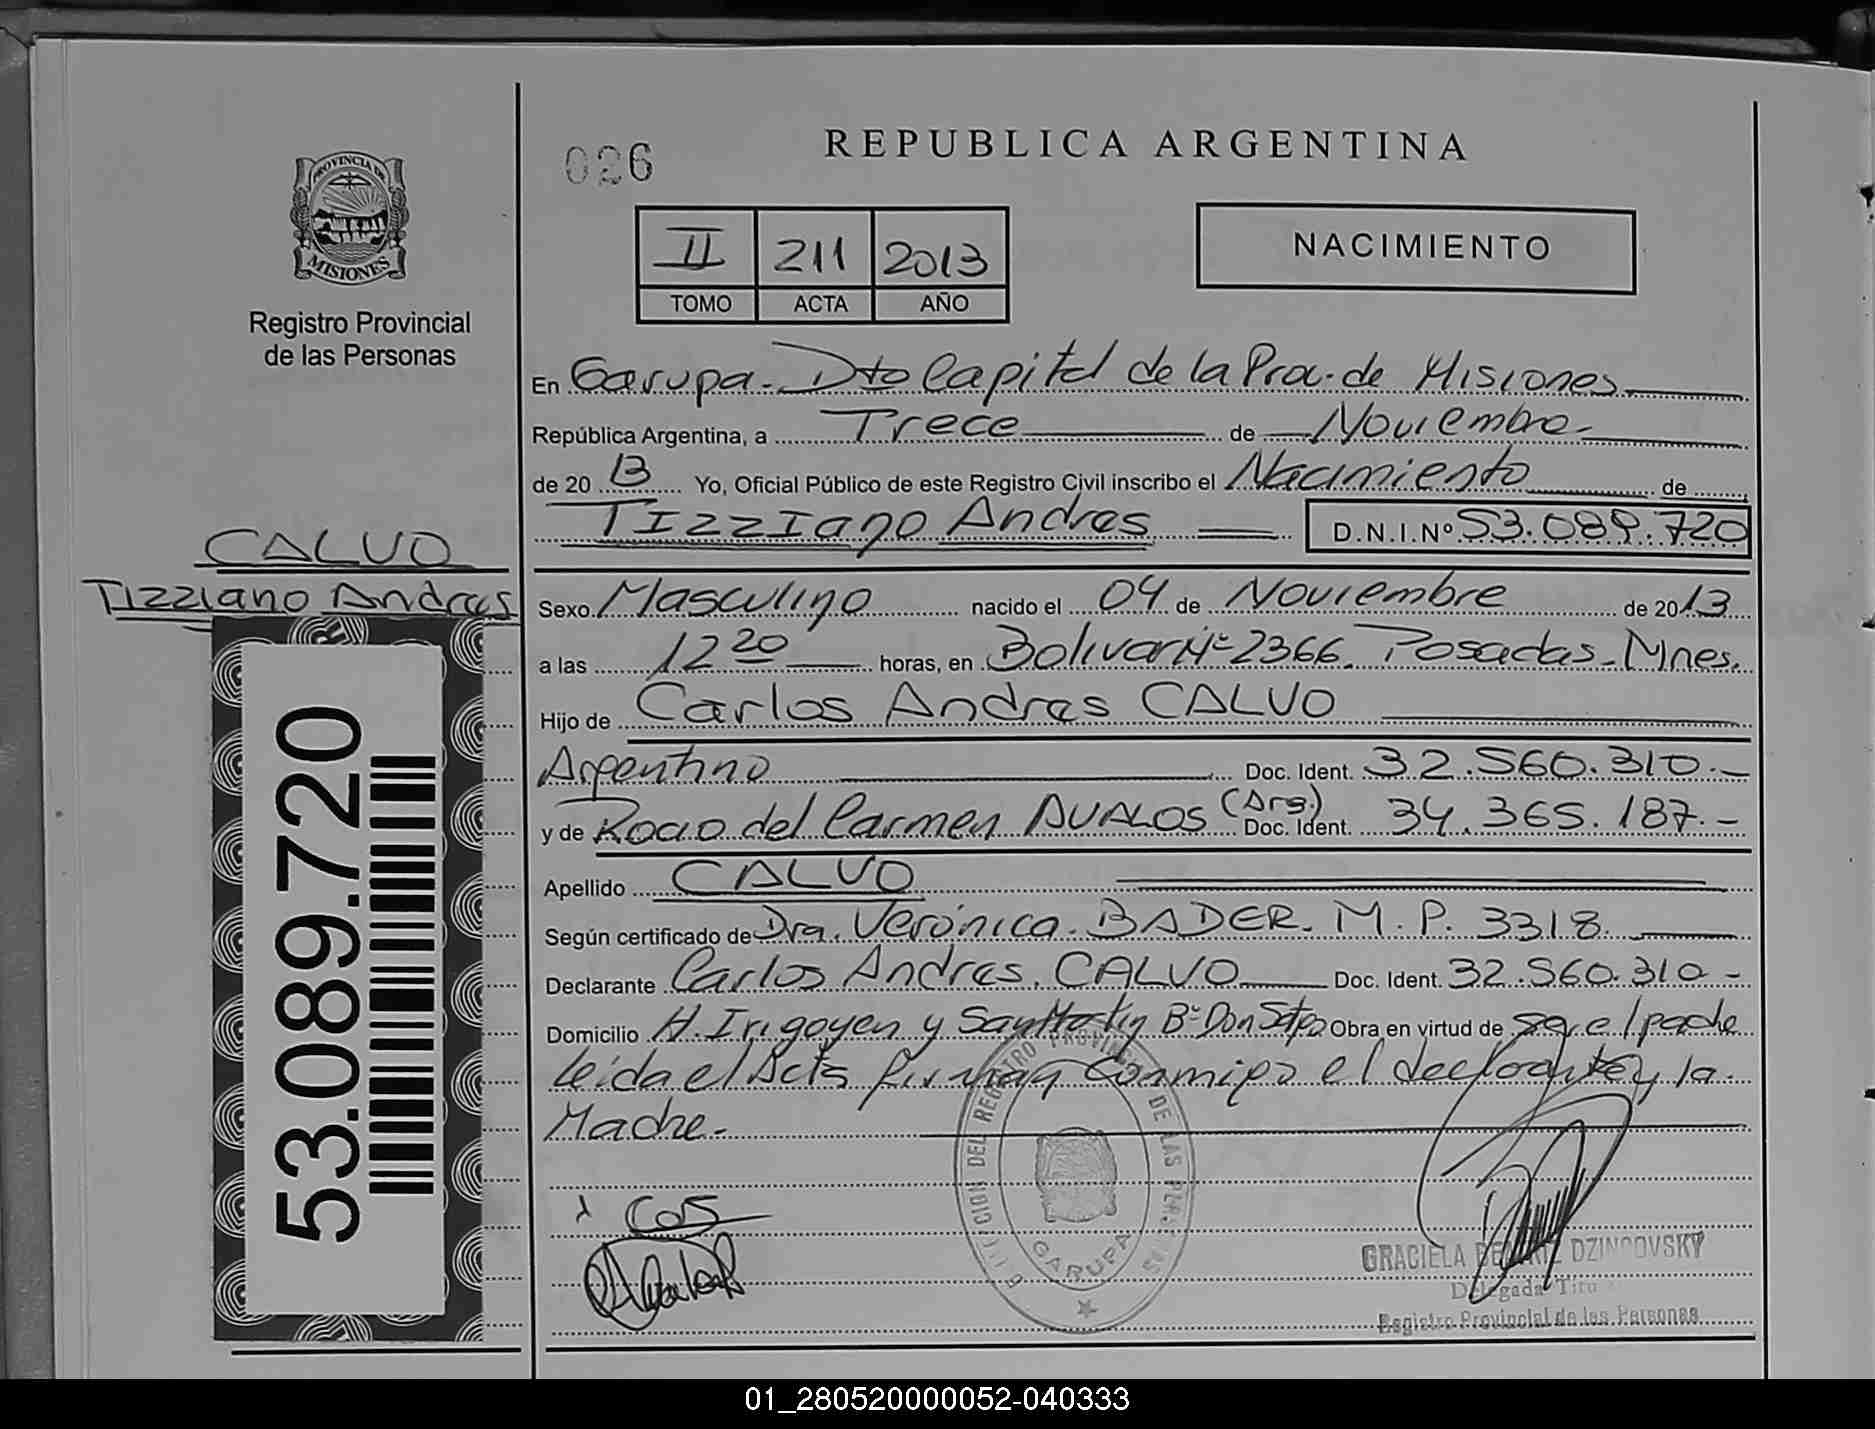 026
REPUBLICA ARGENTINA
PROVINCIA DE
MISIONES
Registro Provincial
de las Personas
II 211 2013
TOMO ACTA AÑO
NACIMIENTO
En Garupa - Dto Capital de la Prov. de Misiones
República Argentina, a Trece de Noviembre
de 20 13 Yo, Oficial Público de este Registro Civil inscribo el Nacimiento de
Tizziano Andres D.N.I.Nº 53.089.720
CALVO
Tizziano Andres
Sexo Masculino nacido el 04 de Noviembre de 2013
a las 12 20 horas, en Bolivar Nº 2366. Posadas - Mnes.
Hijo de Carlos Andres CALVO
Argentino Doc. Ident. 32.560.310.-
y de Rocio del Carmen AVALOS (Arg.) Doc. Ident. 34.365.187.-
Apellido CALVO
Según certificado de Dra. Verónica BADER. M.P. 3318
Declarante Carlos Andres CALVO Doc. Ident. 32.560.310 -
Domicilio H. Irigoyen y San Martin Bº Don Obra en virtud de ser el padre
leida el Acta Firman Conmigo el declarante y la
Madre.-
53.089.720
DEL REGISTRO PROVINCIAL DE LAS PERSONAS
GARUPA
GRACIELA DZINCOVSKY
Delegada
Registro Provincial de las Personas
01_280520000052-040333